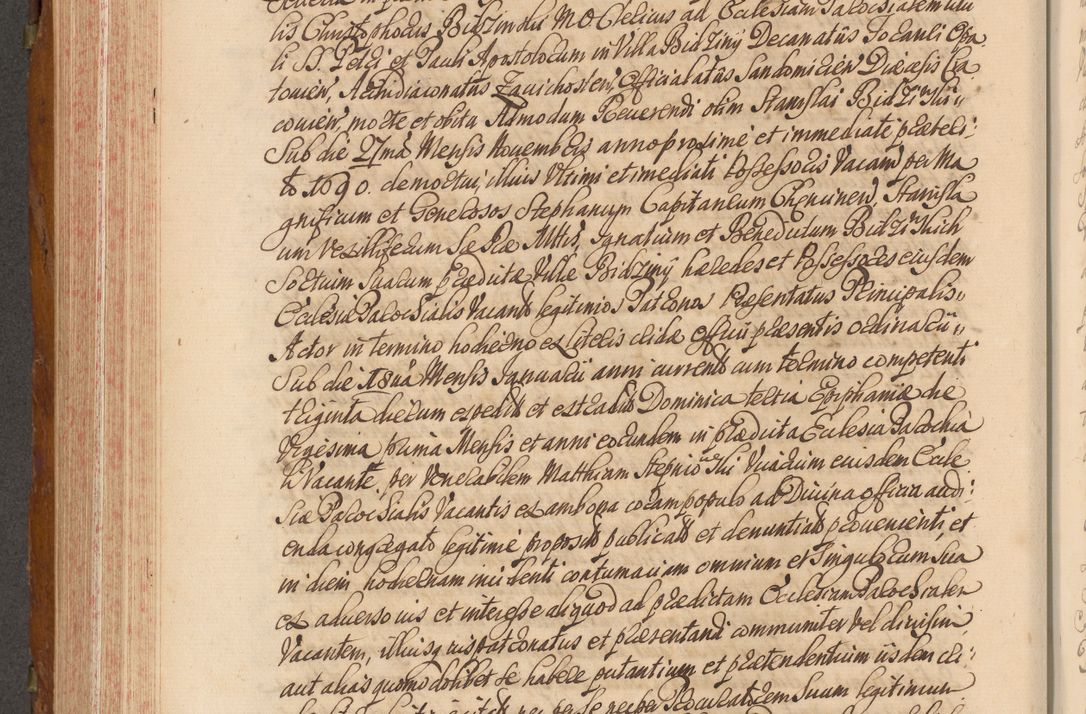 lis Christophorus Bidzinski M. O. Clericus ad Ecclesiam Parochialem titu
li SS. Petri et Pauli Apostolorum in Villa Bidziny Decanatus
coviem, Archidiaconatus Zavichosten, Officialatus Sandomirien Diæcesis Cra
covien, morte et obitu Admodum Reverendi olim Stanislai Bidzinski
Sub die 27ma Mensis Novembris anno proxime et immediate præteri:
to 1690. demortui, illius Ultimi et imediati Possessoris Vacan, per Ma
gnificum et Generosos Stephanum Capitaneum Chencinen, Stanisla
um Vexilliferum Sæ Ræ Mttis, Ignatium et Benedictum Bidzinskich
Sortium suarum præditæ Villæ Bidziny hæredes et Possessores eiusdem
Ecclesiæ Parochialis Vacant legitimos Patronos Præsentatus Principalis
Actor in termino hodierno ex literis cridæ officii præsentis ordinarii
Sub die 18va Mensis Ianuarii anni currentis cum termino competenti
triginta dierum expedit et extradit Dominica tertia Epiphaniæ die
Vigesima prima Mensis et anni eorundem in prædicta Ecclesia Parochia
li Vacante, per Venerabilem Matthiam Stepniowski Vicarium eiusdem Eccle
siæ Parochialis Vacantis ex ambona coram populo ad Divina officia audi:
enda congregato legitime proposit publicat et denuntiat provenienti, et
in diem hodiernam incidenti contumaciam omnium et Singulorum sua
ex adverso ius et interesse aliquod ad prædictam Ecclesiam Parochialem
Vacantem, illiusq ius patronatus et præsentandi communiter vel divisim
aut alias quomodolibet se habere putantium et prætendentium iisdem cri:
legitimum